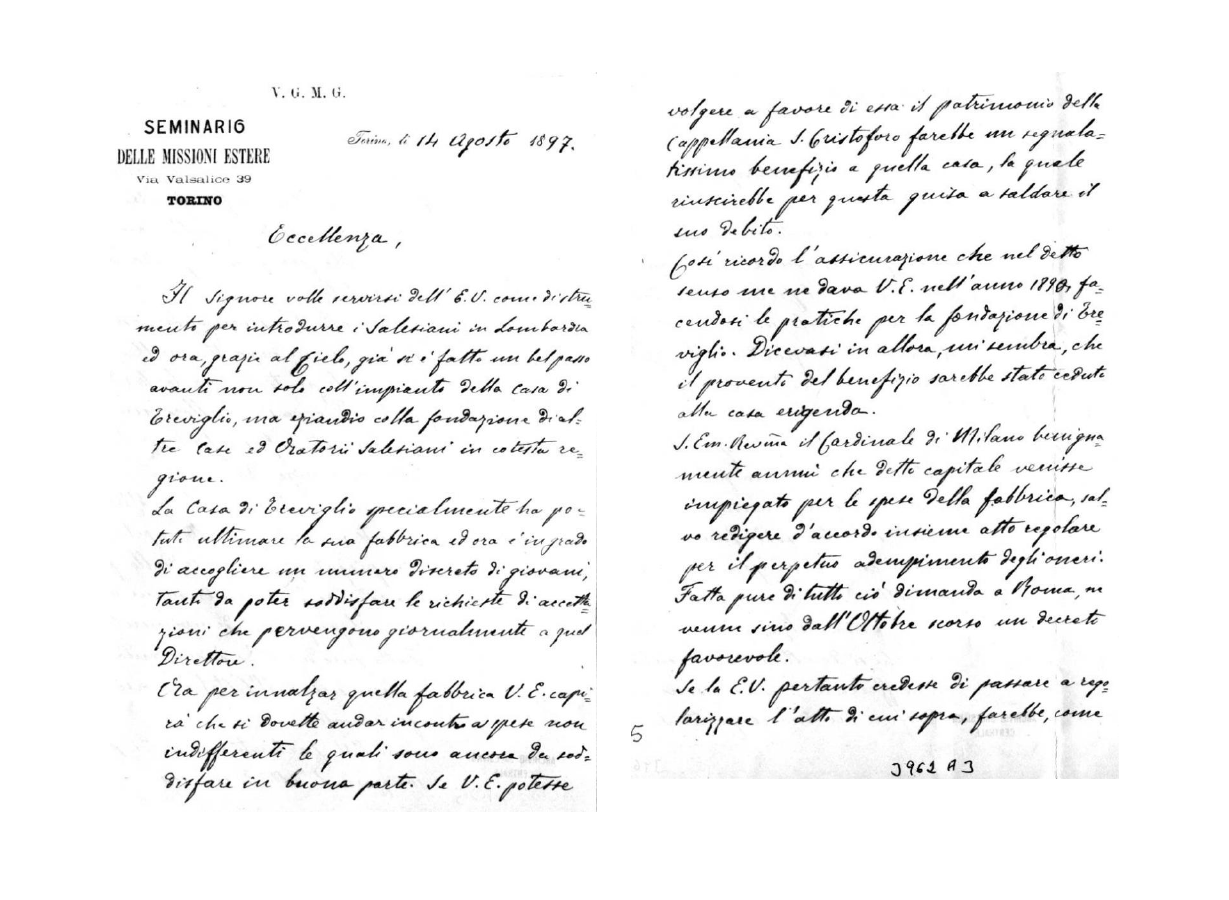 V. G. M. G.
SEMINARIO
DELLE MISSIONI ESTERE
Via Valsalice 39
TORINO
Torino, li 14 Agosto 1897.
Eccellenza,
Il Signore volle servirsi dell' E.V. come di stru-
mento per introdurre i Salesiani in Lombardia
ed ora, grazie al Cielo, già si è fatto un bel passo
avanti non solo coll'impianto della Casa di
Treviglio, ma eziandio colla fondazione di al-
tre Case ed Oratorii Salesiani in cotesta re-
gione.
La Casa di Treviglio specialmente ha po-
tuto ultimare la sua fabbrica ed ora è in grado
di accogliere un numero discreto di giovani,
tanto da poter soddisfare le richieste di accetta-
zioni che pervengono giornalmente a quel
Direttore.
Ora per innalzar quella fabbrica V. E. capi-
rà che si dovette andar incontro a spese non
indifferenti le quali sono ancora da sod-
disfare in buona parte. Se V. E. potesse
volgere a favore di essa il patrimonio della
Cappellania S. Cristoforo farebbe un segnala-
tissimo benefizio a quella casa, la quale
riuscirebbe per questa guisa a saldare il
suo debito.
Così ricordo l'assicurazione che nel detto
senso me ne dava V. E. nell'anno 1890, fa-
cendosi le pratiche per la fondazione di Tre-
viglio. Dicevasi in allora, mi sembra, che
il provento del benefizio sarebbe stato ceduto
alla casa erigenda.
S. Em. Revma il Cardinale di Milano benigna-
mente annuì che detto capitale venisse
impiegato per le spese della fabbrica, sal-
vo redigere d'accordo insieme atto regolare
per il perpetuo adempimento degli oneri.
Fatta pure di tutto ciò dimanda a Roma, ne
venne sino dall'Ottobre scorso un decreto
favorevole.
Se la E.V. pertanto credesse di passare a rego-
larizzare l'atto di cui sopra, farebbe, come
5
3962 A 3